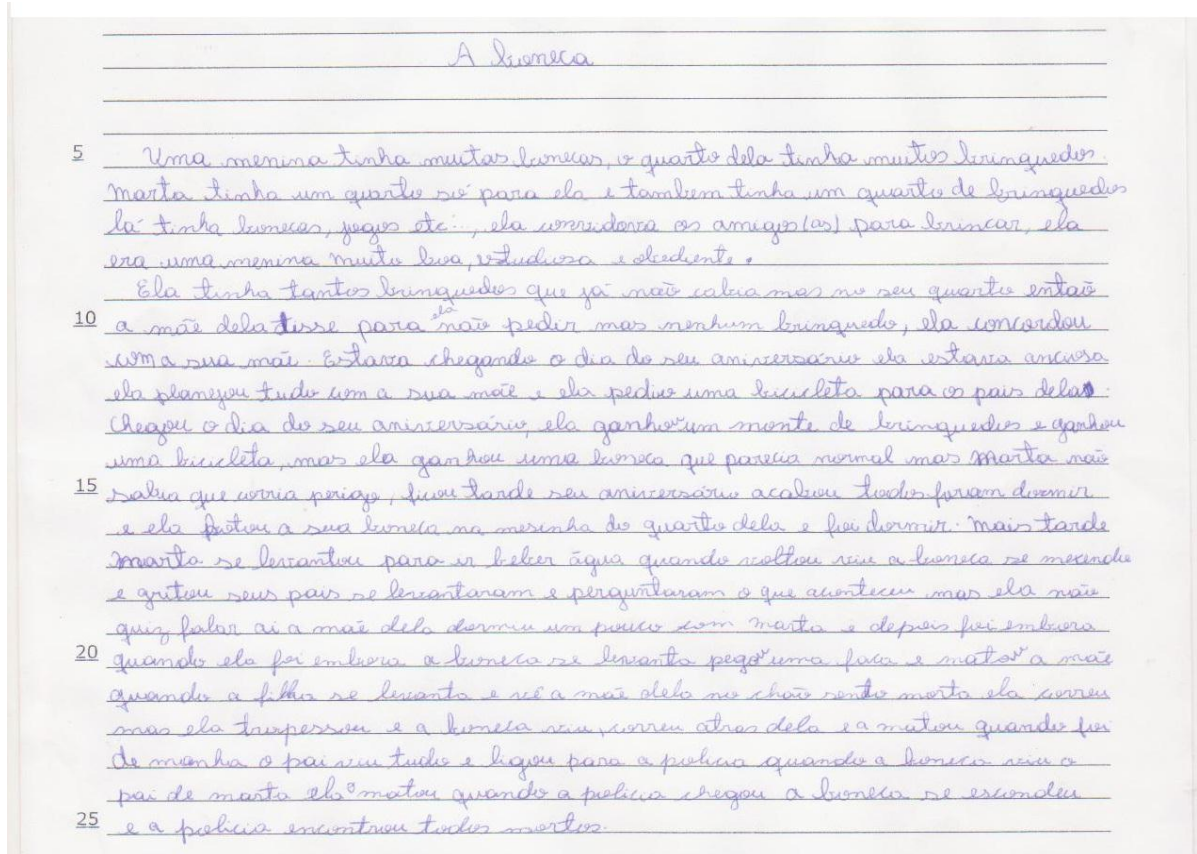 A boneca
5 Uma menina tinha muitas bonecas, o quarto dela tinha muitos brinquedos.
Marta tinha um quarto só para ela e tambem tinha um quarto de brinquedos
lá tinha bonecas, jogos etc..., ela convidava os amigos(as) para brincar, ela
era uma menina muito boa, estudiosa e obediente.
Ela tinha tantos brinquedos que já não cabia mas no seu quarto então
10 a mãe dela disse para ela não pedir mas nenhum brinquedo, ela concordou
com a sua mãe. Estava chegando o dia do seu aniversário ela estava anciosa
ela planejou tudo com a sua mãe e ela pediu uma bicicleta para os pais dela.
Chegou o dia do seu aniversário, ela ganhou um monte de brinquedos e ganhou
uma bicicleta, mas ela ganhou uma boneca que parecia normal mas Marta não
15 sabia que corria perigo, ficou tarde seu aniversário acabou todos foram dormir
e ela botou a sua boneca na mesinha do quarto dela e foi dormir. Mais tarde
Marta se levantou para ir beber água quando voltou viu a boneca se mexendo
e gritou seus pais se levantaram e perguntaram o que aconteceu mas ela não
quiz falar ai a mãe dela dormiu um pouco com Marta e depois foi embora
20 quando ela foi embora a boneca se levanta pegou uma faca e matou a mãe
quando a filha se levanta e vê a mãe dela no chão sento morta ela correu
mas ela tropessou e a boneca viu, correu atras dela e a matou quando foi
de manha o pai viu tudo e ligou para a policia quando a boneca viu o
pai de marta ela o matou quando a policia chegou a boneca se escondeu
25 e a policia encontrou todos mortos.